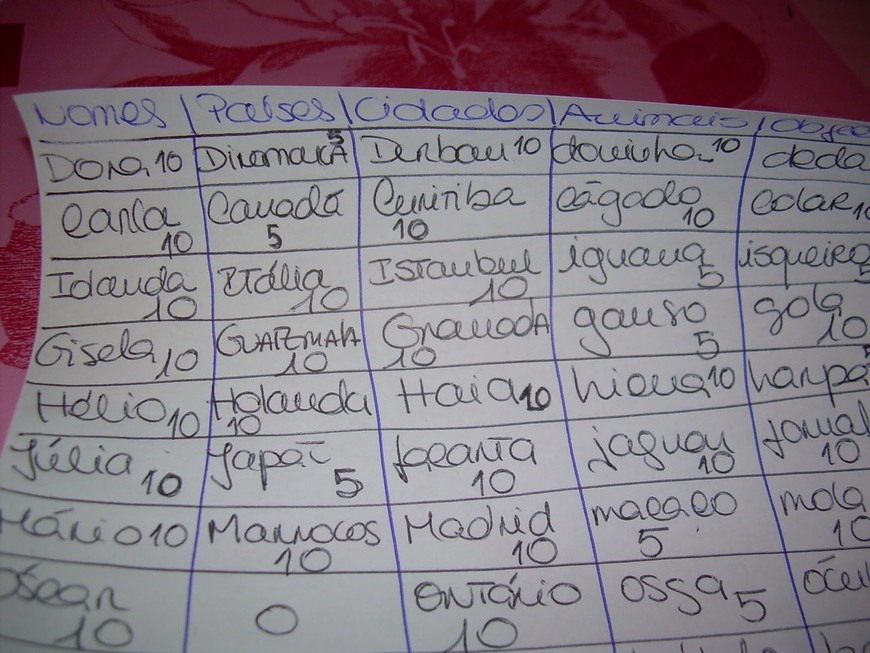 Nomes | Países | Cidades | Animais | Obje
Dora 10 Dinamarca 5 Derbau 10 douinha 10 deda
Carla 10 Canadá 5 Curitiba 10 cágado 10 colar 10
Idauda 10 Itália 10 Istanbul 10 iguana 5 isqueiro 5
Gisela 10 Guatemala 10 Granada 10 ganso 5 gola 10
Hélio 10 Holanda 10 Haia 10 hiena 10 harpa 5
Júlia 10 Japão 5 Jacarta 10 jaguar 10 jornal 10
Mário 10 Marrocos 10 Madrid 10 macaco 5 mola 10
Óscar 10 0 Ontário 10 ossga 5 ócul